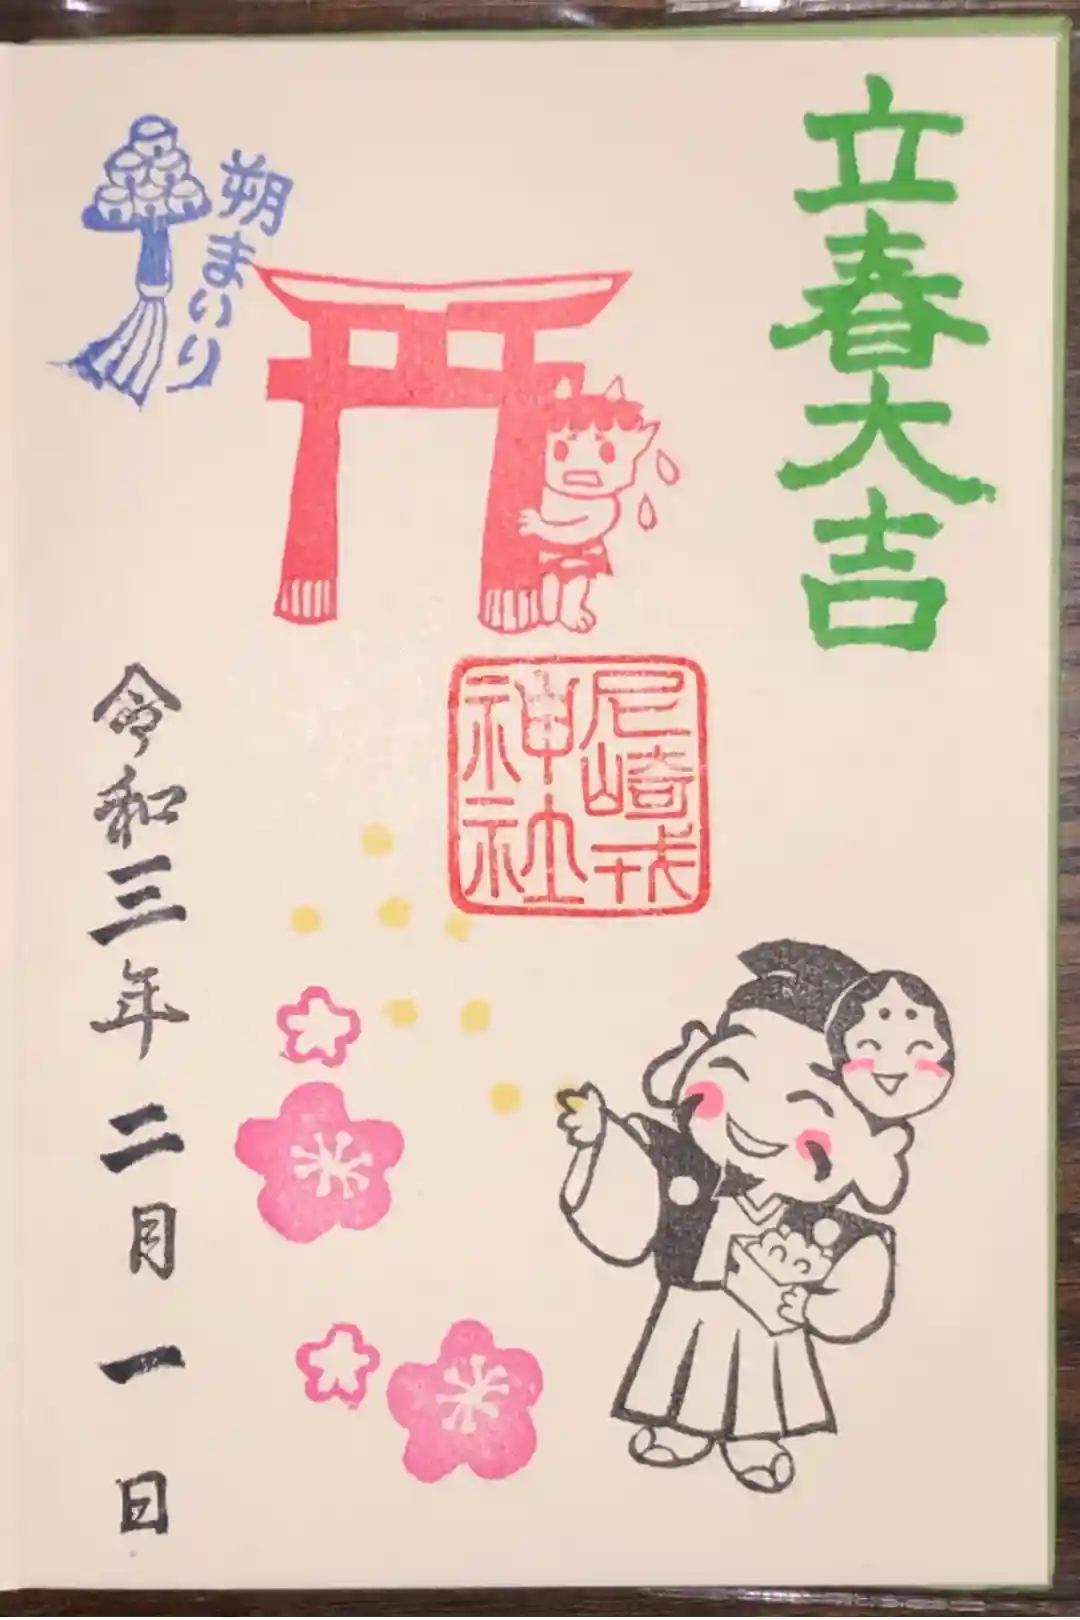 立春大吉
朔まいり
尼崎戎
神社
令和三年二月一日